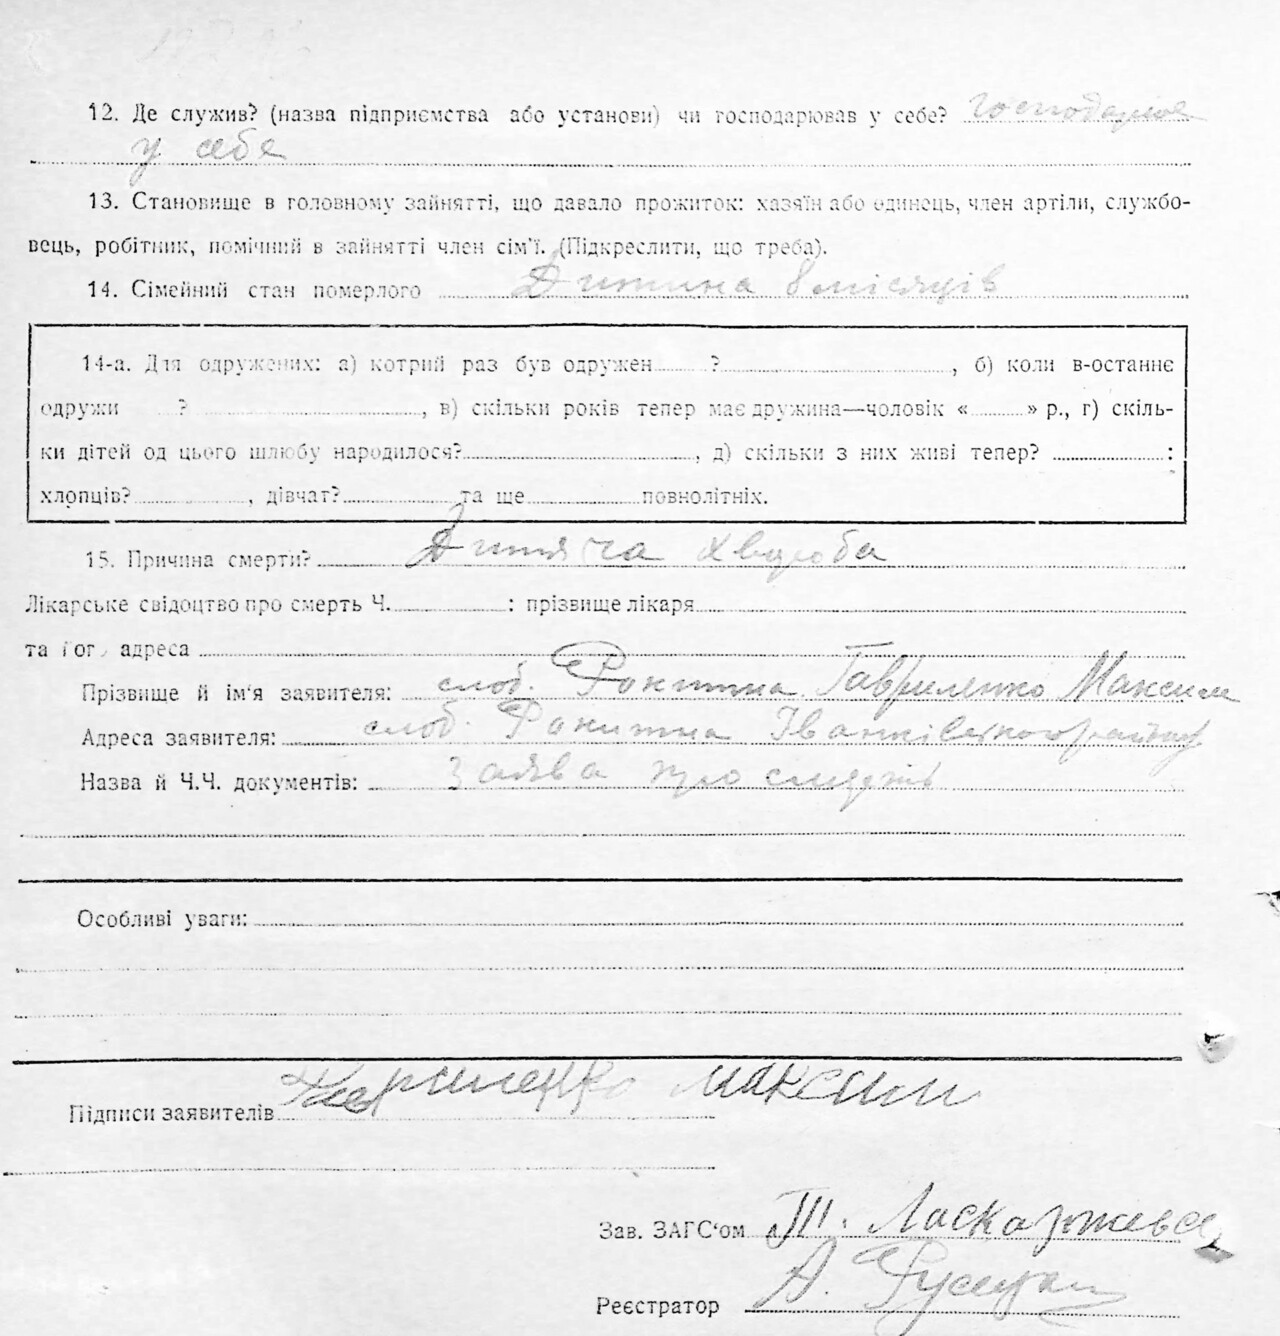 12. Де служив? (назва підприємства або установи) чи господарював у себе? Господарює
у себе
13. Становище в головному зайнятті, що давало прожиток: хазяїн або одинець, член артіли, службо-
вець, робітник, помічний в зайнятті член сім'ї. (Підкреслити, що треба).
14. Сімейний стан померлого Дитина 8 місяців
14-а. Для одружених: а) котрий раз був одружен ? , б) коли в-останнє
одружи ? , в) скільки років тепер має дружина—чоловік « » р., г) скіль-
ки дітей од цього шлюбу народилося? , д) скільки з них живі тепер? :
хлопців? , дівчат? та ще повнолітніх.
15. Причина смерти? Дитяча хвороба
Лікарське свідоцтво про смерть Ч. : прізвище лікаря
та його адреса
Прізвище й ім'я заявителя: слоб. Рокитна Гавриленко Максим
Адреса заявителя: слоб. Рокитна Іванківського району
Назва й Ч.Ч. документів: Заява про смерть
Особливі уваги:
Підписи заявителів Гавриленко Максим
Зав. ЗАГС'ом
Реєстратор А.